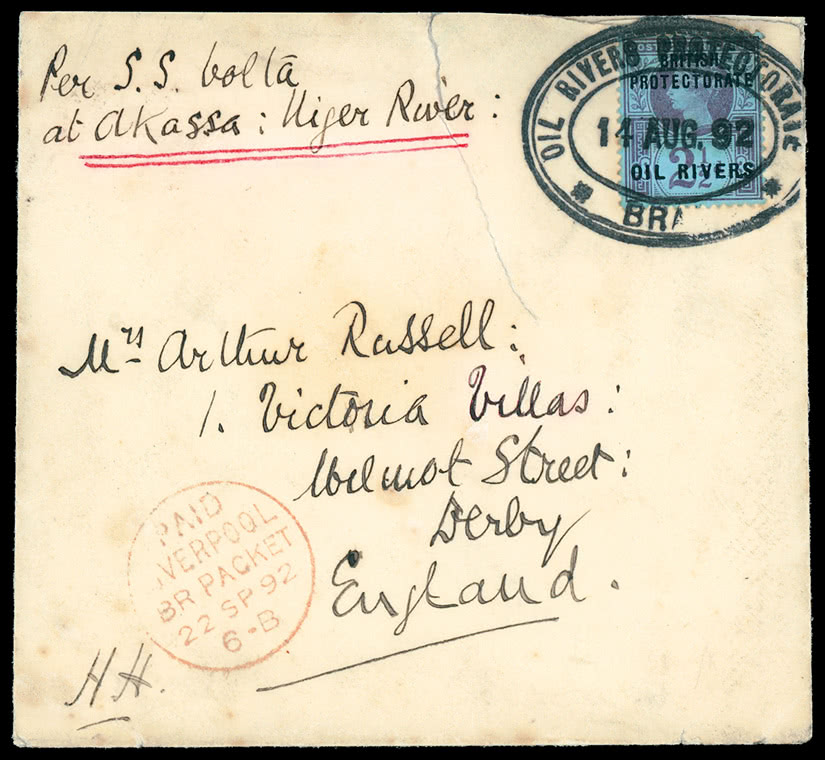 Per S.S. Volta
at Akassa: Niger River:
OIL RIVERS PROTECTORATE
14 AUG. 92
BRA
POST
BRITISH
PROTECTORATE
OIL RIVERS
2½
Mrs Arthur Russell:
1. Victoria Villas:
Wilmot Street:
Derby
England.
PAID
LIVERPOOL
BR PACKET
22 SP 92
6-B
HH.